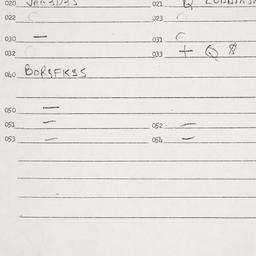 020 021
022 023
030 — 031
032 033 + Q 8
040 BORSFKSS
050 —
051 — 052 —
053 — 054 —